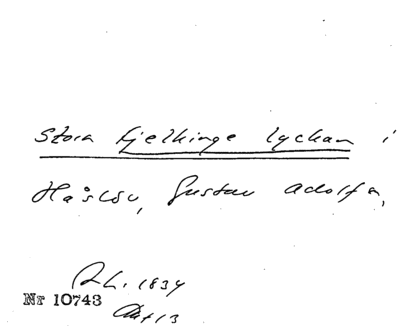 Stora Fjelkinge lyckan i
Håslöv, Gustav Adolfs,
R.L. 1834
Nr 10743
Akt 13